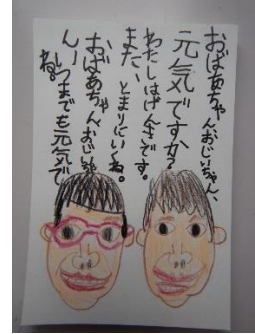 おばあちゃん、おじいちゃん、
元気ですか？
わたしはげんきです。
また、とまりにいくね。
おばあちゃん、おじいちゃ
ん、いつまでも元気で
ね。